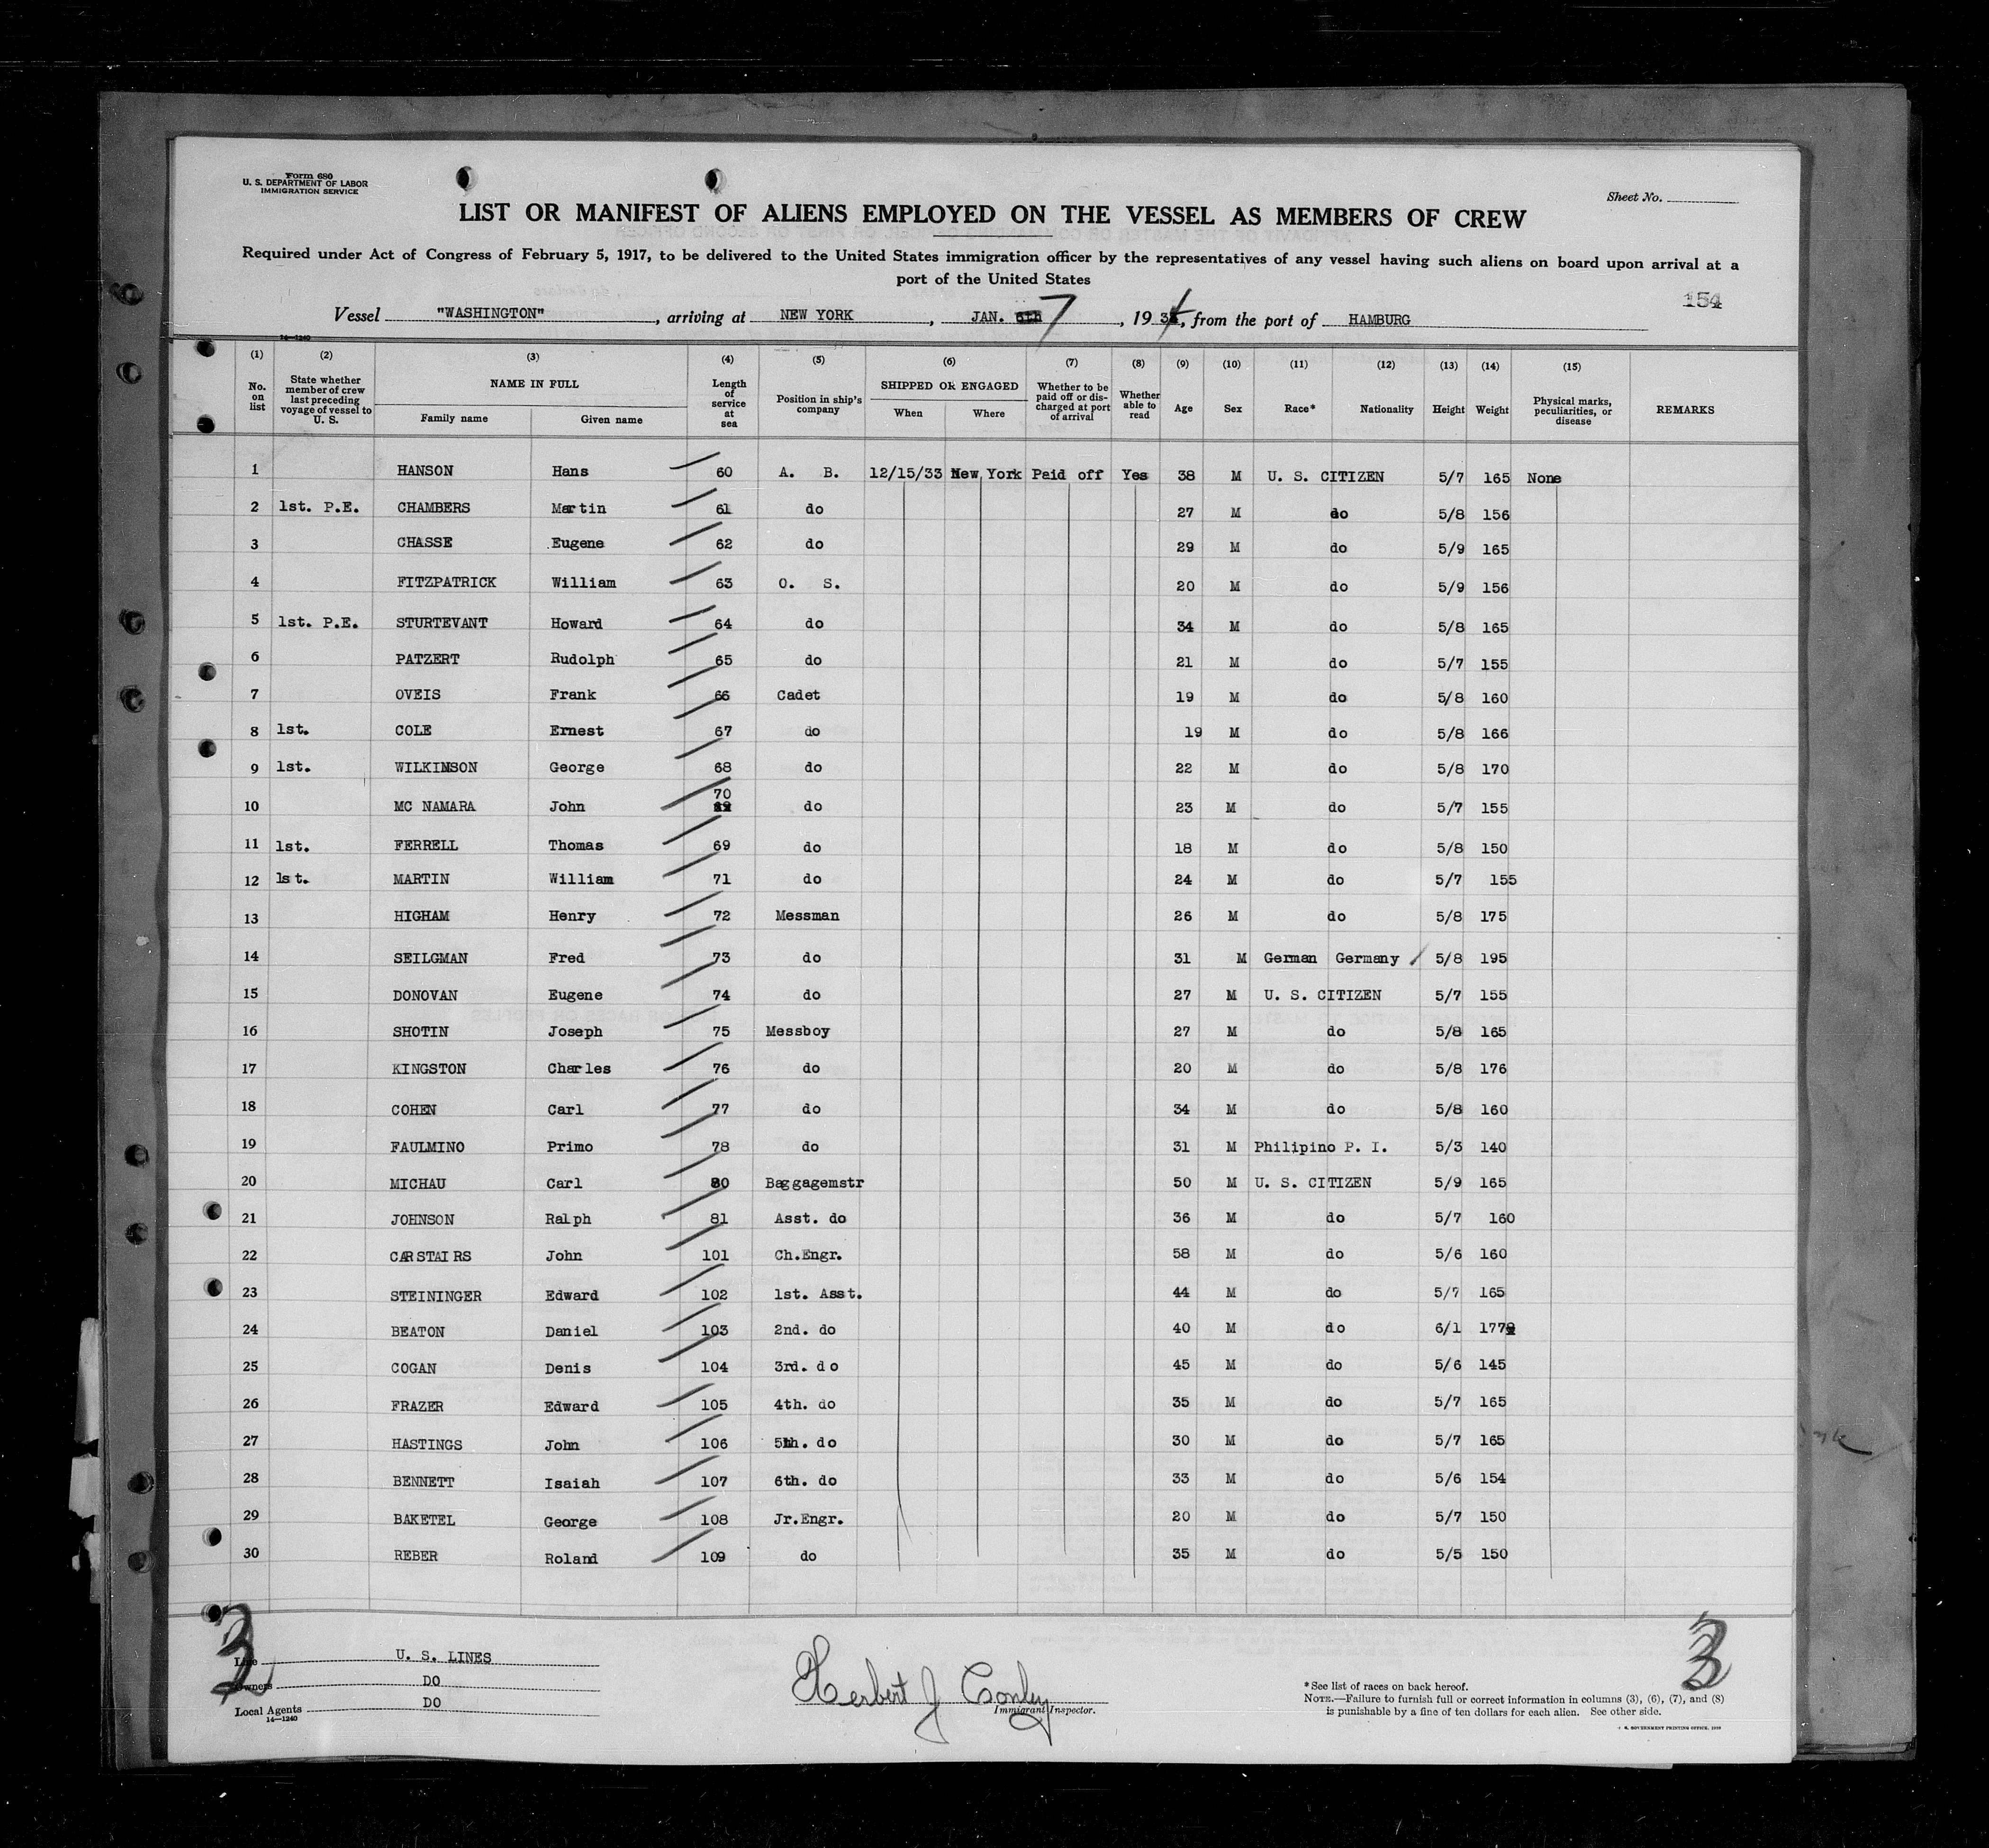 Form 680
U. S. DEPARTMENT OF LABOR
IMMIGRATION SERVICE
Sheet No.
LIST OR MANIFEST OF ALIENS EMPLOYED ON THE VESSEL AS MEMBERS OF CREW
Required under Act of Congress of February 5, 1917, to be delivered to the United States immigration officer by the representatives of any vessel having such aliens on board upon arrival at a
port of the United States
154
Vessel "WASHINGTON", arriving at NEW YORK, JAN. 7, 1934, from the port of HAMBURG
14—1240
(1) No. on list
(2) State whether member of crew last preceding voyage of vessel to U. S.
(3) NAME IN FULL Family name Given name
(4) Length of service at sea
(5) Position in ship's company
(6) SHIPPED OR ENGAGED When Where
(7) Whether to be paid off or discharged at port of arrival
(8) Whether able to read
(9) Age
(10) Sex
(11) Race*
(12) Nationality
(13) Height
(14) Weight
(15) Physical marks, peculiarities, or disease
REMARKS
1 HANSON Hans 60 A. B. 12/15/33 New York Paid off Yes 38 M U. S. CITIZEN 5/7 165 None
2 1st. P.E. CHAMBERS Martin 61 do 27 M do 5/8 156
3 CHASSE Eugene 62 do 29 M do 5/9 165
4 FITZPATRICK William 63 O. S. 20 M do 5/9 156
5 1st. P.E. STURTEVANT Howard 64 do 34 M do 5/8 165
6 PATZERT Rudolph 65 do 21 M do 5/7 155
7 OVEIS Frank 66 Cadet 19 M do 5/8 160
8 1st. COLE Ernest 67 do 19 M do 5/8 166
9 1st. WILKINSON George 68 do 22 M do 5/8 170
10 MC NAMARA John 70 do 23 M do 5/7 155
11 1st. FERRELL Thomas 69 do 18 M do 5/8 150
12 1st. MARTIN William 71 do 24 M do 5/7 155
13 HIGHAM Henry 72 Messman 26 M do 5/8 175
14 SEILGMAN Fred 73 do 31 M German Germany 5/8 195
15 DONOVAN Eugene 74 do 27 M U. S. CITIZEN 5/7 155
16 SHOTIN Joseph 75 Messboy 27 M do 5/8 165
17 KINGSTON Charles 76 do 20 M do 5/8 176
18 COHEN Carl 77 do 34 M do 5/8 160
19 FAULMINO Primo 78 do 31 M Philipino P. I. 5/3 140
20 MICHAU Carl 80 Baggagemstr 50 M U. S. CITIZEN 5/9 165
21 JOHNSON Ralph 81 Asst. do 36 M do 5/7 160
22 CARSTAIRS John 101 Ch.Engr. 58 M do 5/6 160
23 STEININGER Edward 102 1st. Asst. 44 M do 5/7 165
24 BEATON Daniel 103 2nd. do 40 M do 6/1 177
25 COGAN Denis 104 3rd. do 45 M do 5/6 145
26 FRAZER Edward 105 4th. do 35 M do 5/7 165
27 HASTINGS John 106 5th. do 30 M do 5/7 165
28 BENNETT Isaiah 107 6th. do 33 M do 5/6 154
29 BAKETEL George 108 Jr.Engr. 20 M do 5/7 150
30 REBER Roland 109 do 35 M do 5/5 150
3
3
Line U. S. LINES
Owners DO
Local Agents DO
14—1240
Herbert J Conley
Immigrant Inspector.
*See list of races on back hereof.
NOTE.—Failure to furnish full or correct information in columns (3), (6), (7), and (8)
is punishable by a fine of ten dollars for each alien. See other side.
U. S. GOVERNMENT PRINTING OFFICE